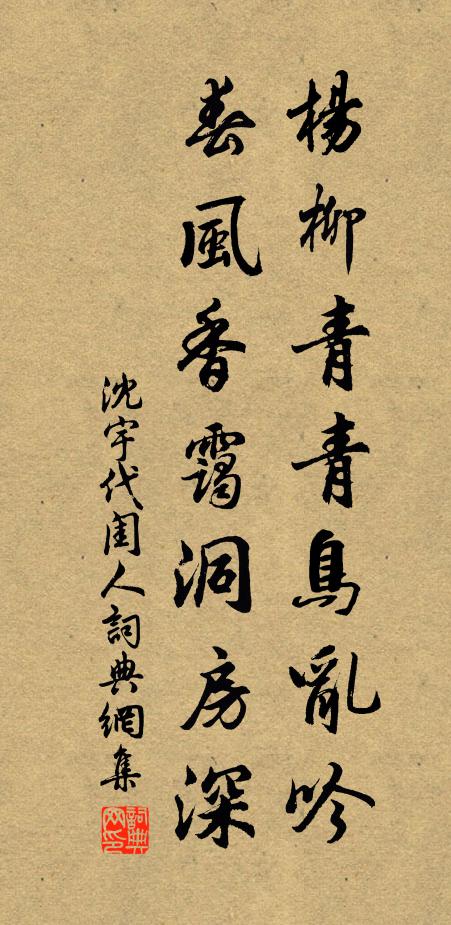 楊柳青青鳥亂吟
春風香靄洞房深
沈宇代閨人詞典網集
詞典網印